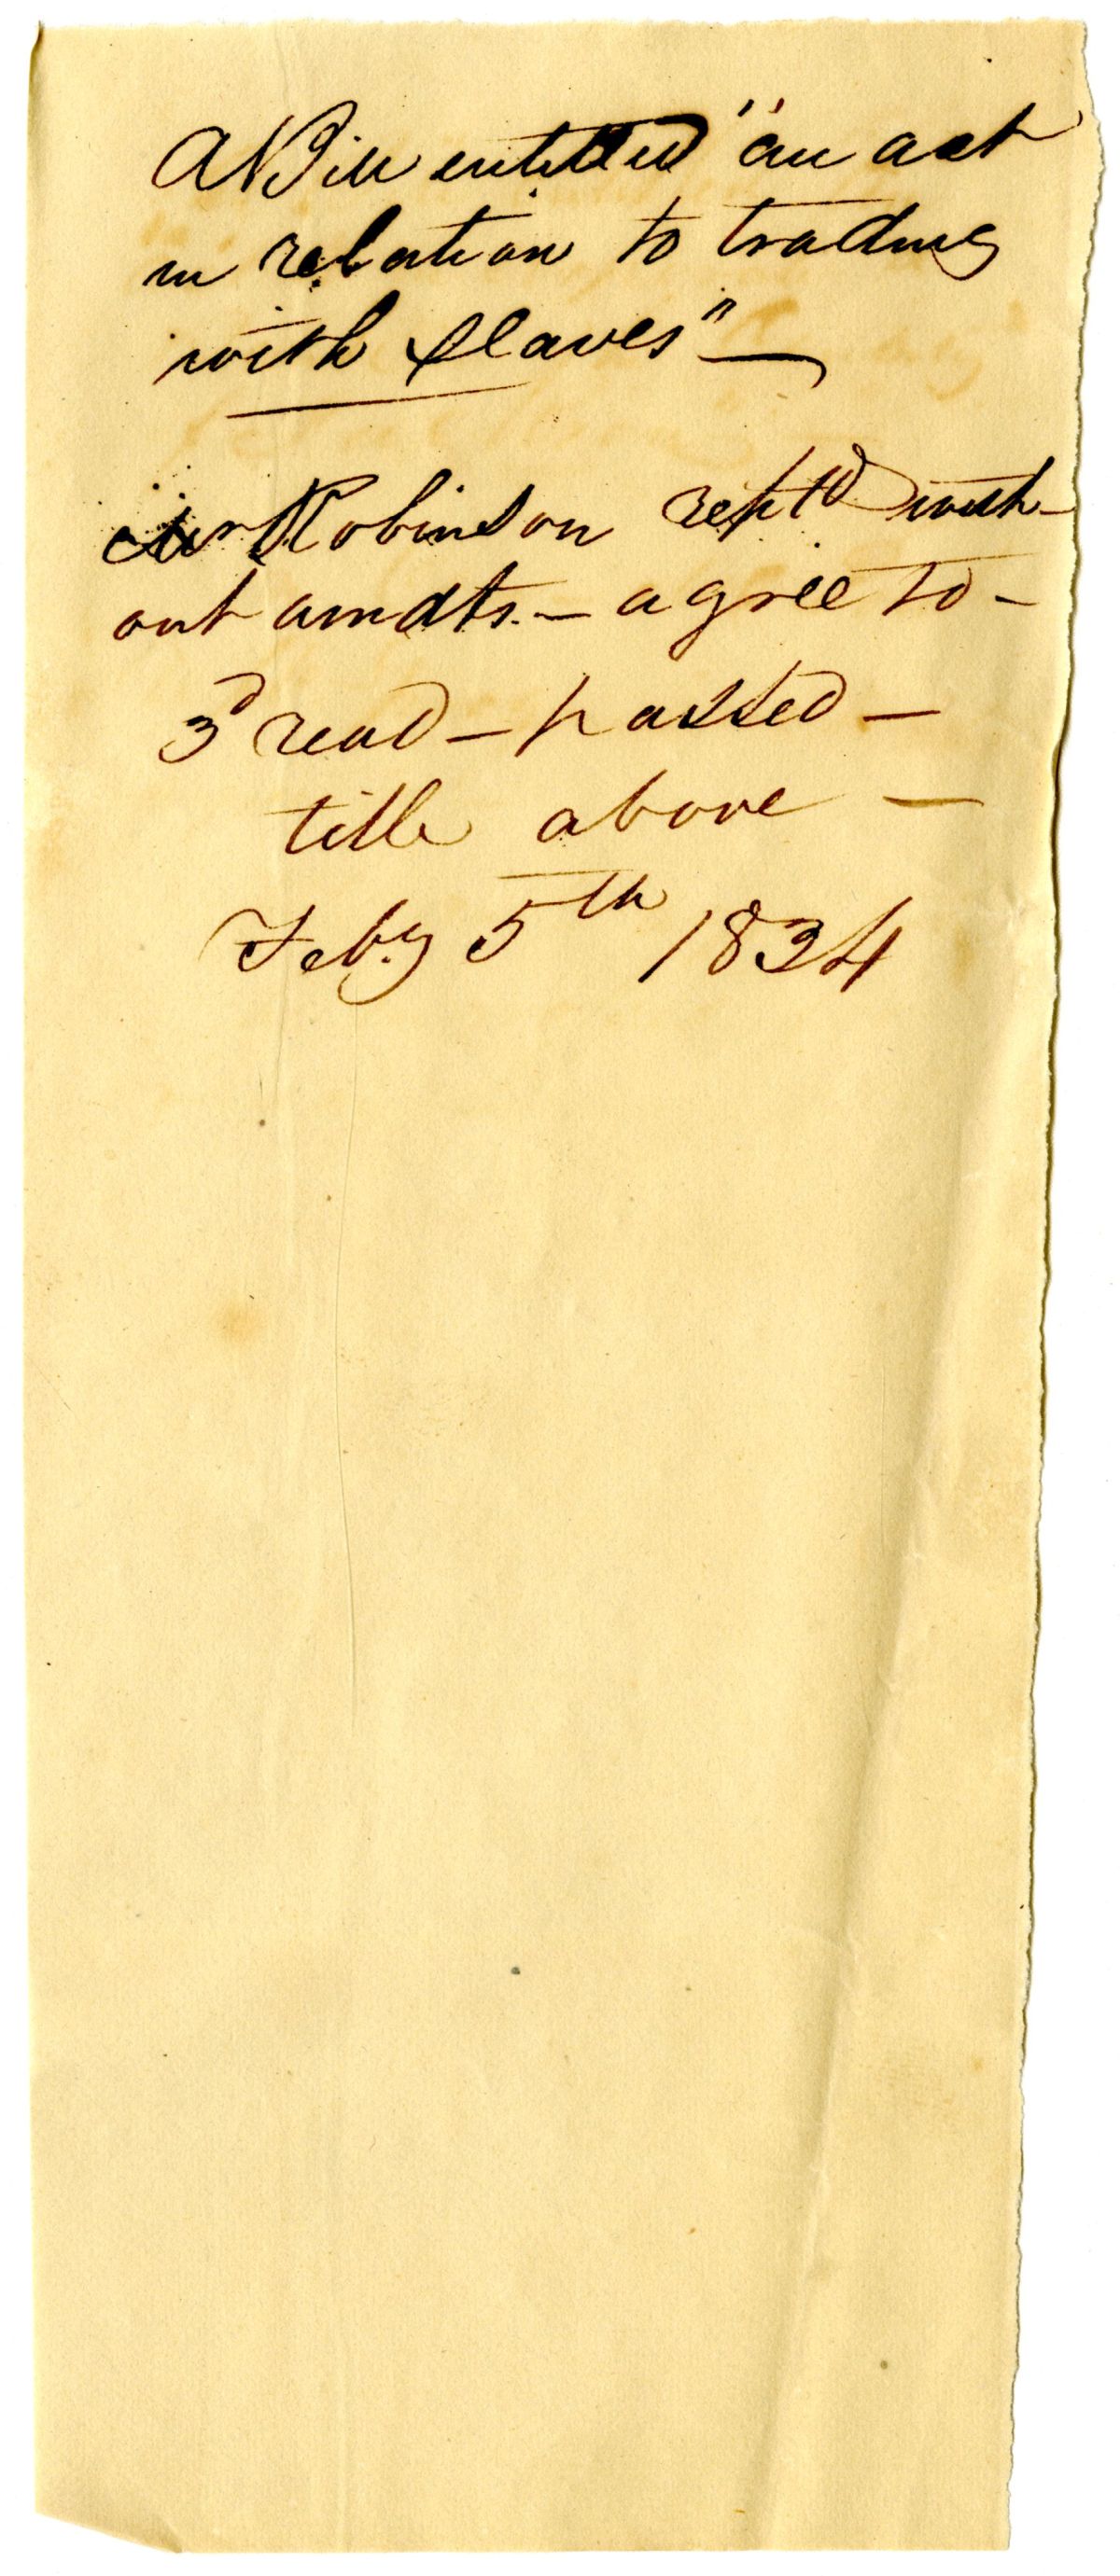 A Bill entitled "an act
in relation to trading
with slaves" —
Mr Robinson reptd with-
out amdts. — agree to —
3d read — passed —
title above —
Feby 5th 1834